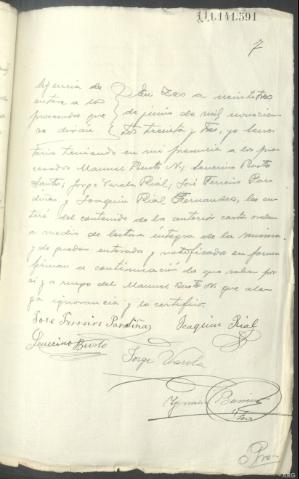 11.141.591
7
Diligencia de
entera a los
procesados que
se dirán
En Tres a veintitres
de junio de mil novecien
tos treinta y tres, yo Secre
tario teniendo en mi presencia a los pro
cesados Manuel Busto N, Severino Busto
Jorge Varela Rial, José Ferreiro Par
diñas y Joaquin Rial Fernandez, les en
teré del contenido de la anterior carta orden
a medio de lectura íntegra de la misma
y de quedar enterados y notificados en forma
firman a continuación de que saben por
sí y a ruego del Manuel Busto N. que ale
gó ignorancia y lo certifico.
Jose Ferreiro Pardiñas Joaquin Rial
Severino Busto
Jorge Varela